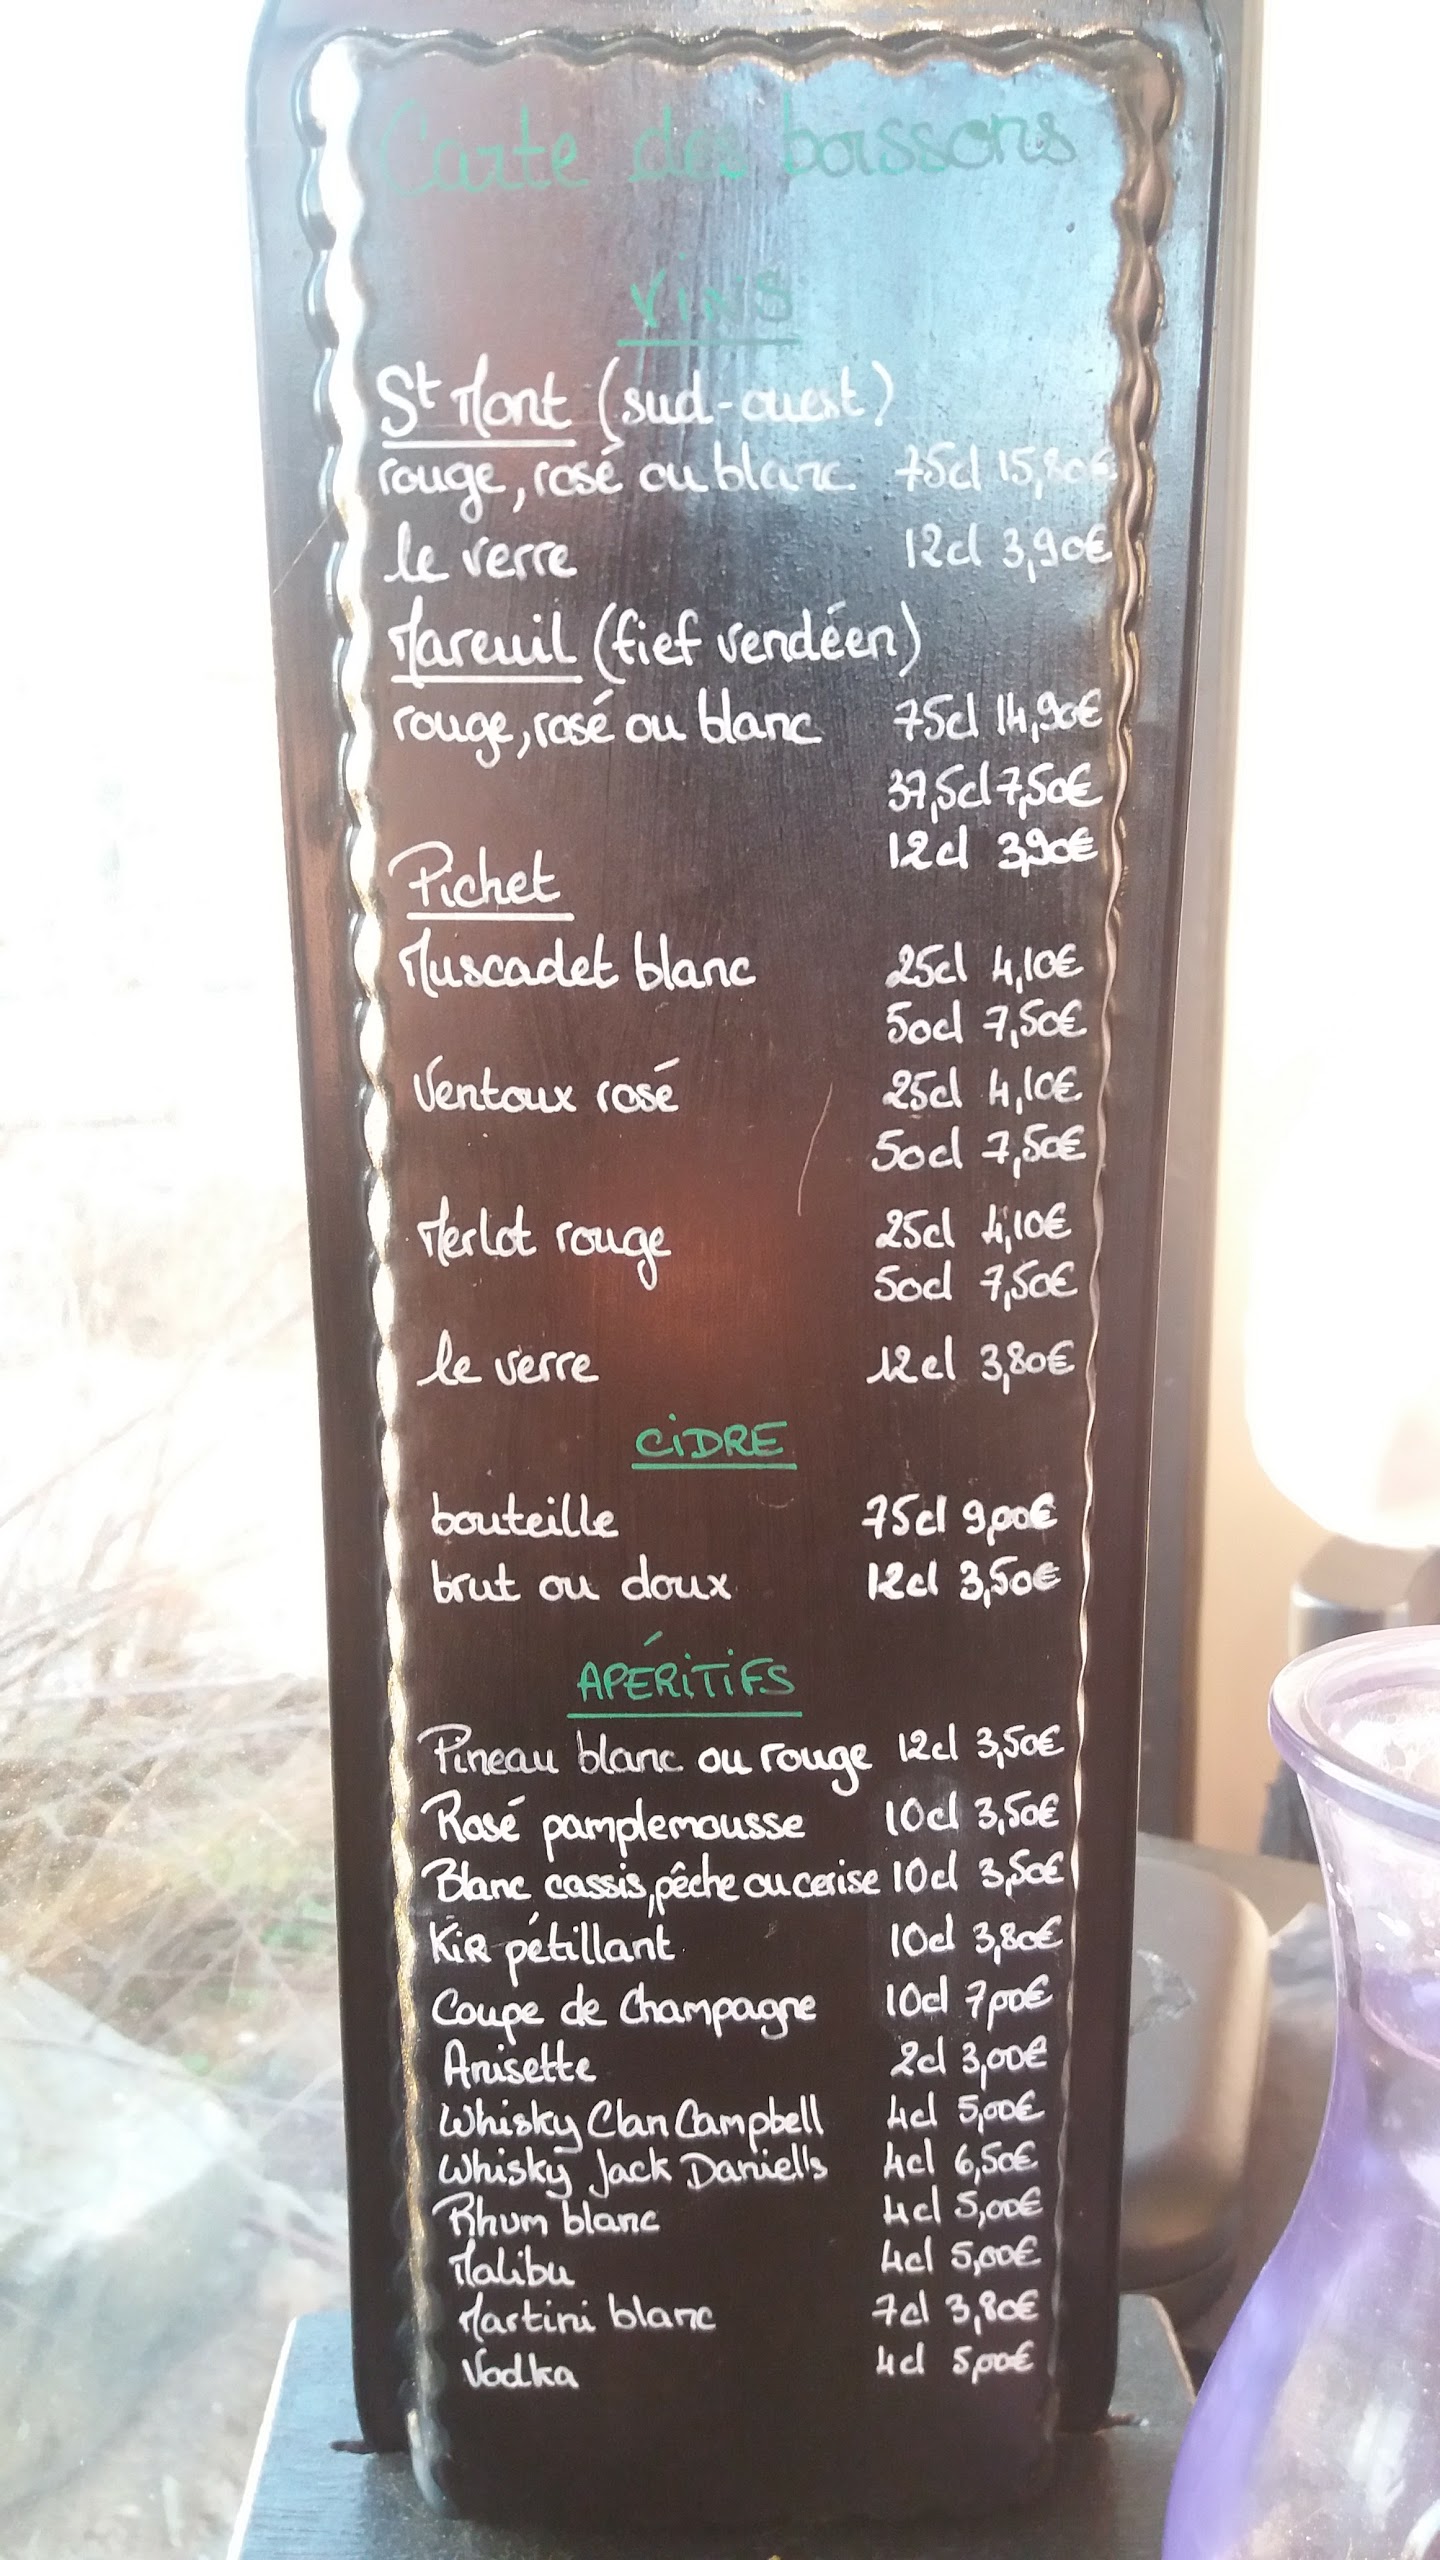 Carte des boissons
VINS
St Mont (sud-ouest)
rouge, rosé ou blanc 75cl 15,80€
le verre 12cl 3,90€
Mareuil (fief vendéen)
rouge, rosé ou blanc 75cl 14,90€
37,5cl 7,50€
12cl 3,90€
Pichet
Muscadet blanc 25cl 4,10€
50cl 7,50€
Ventoux rosé 25cl 4,10€
50cl 7,50€
Merlot rouge 25cl 4,10€
50cl 7,50€
le verre 12cl 3,80€
CiDRE
bouteille 75cl 9,00€
brut ou doux 12cl 3,50€
APÉRiTiFS
Pineau blanc ou rouge 12cl 3,50€
Rosé pamplemousse 10cl 3,50€
Blanc cassis, pêche ou cerise 10cl 3,50€
KiR pétillant 10cl 3,80€
Coupe de Champagne 10cl 7,00€
Anisette 2cl 3,00€
Whisky Clan Campbell 4cl 5,00€
Whisky Jack Daniell's 4cl 6,50€
Rhum blanc 4cl 5,00€
Malibu 4cl 5,00€
Martini blanc 7cl 3,80€
Vodka 4cl 5,00€